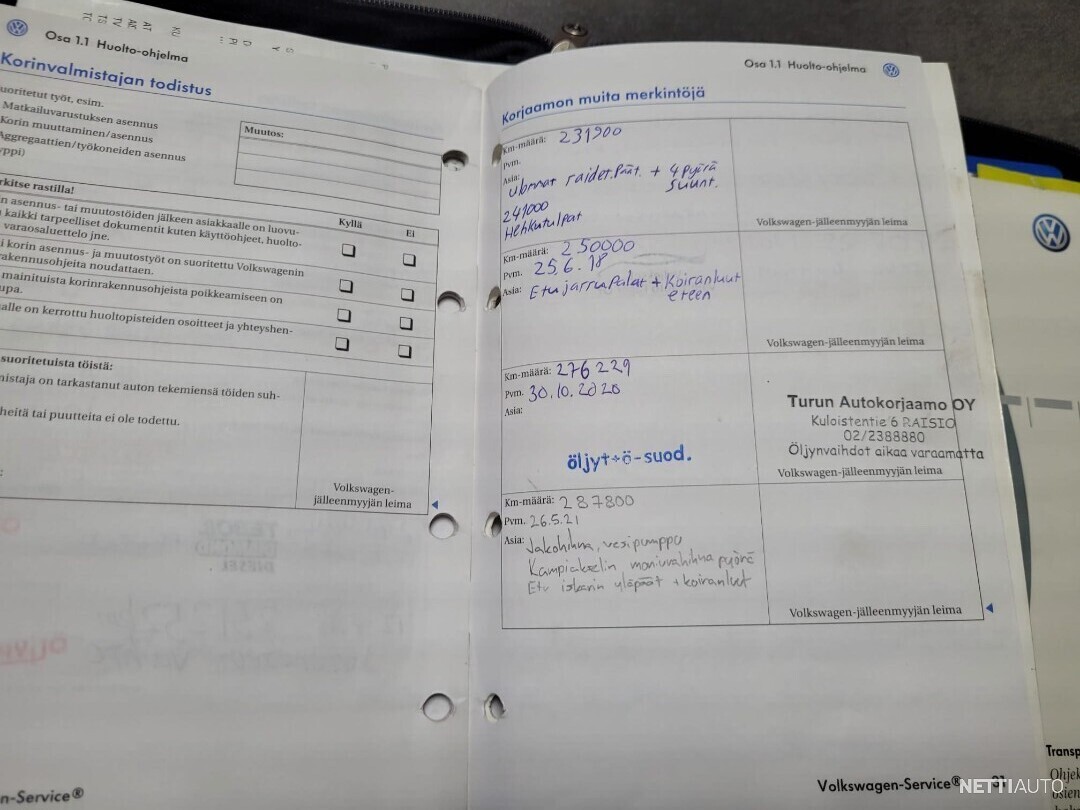 Osa 1.1 Huolto-ohjelma
Korinvalmistajan todistus
Suoritetut työt, esim.
Matkailuvarustuksen asennus
Korin muuttaminen/asennus
Aggregaattien/työkoneiden asennus
yppi)
Muutos:
rkitse rastilla!
Kyllä
Ei
in asennus- tai muutostöiden jälkeen asiakkaalle on luovu-
kaikki tarpeelliset dokumentit kuten käyttöohjeet, huolto-
varaosaluettelo jne.
i korin asennus- ja muutostyöt on suoritettu Volkswagenin
rakennusohjeita noudattaen.
mainituista korinrakennusohjeista poikkeamiseen on
upa.
alle on kerrottu huoltopisteiden osoitteet ja yhteyshen-
suoritetuista töistä:
mistaja on tarkastanut auton tekemiensä töiden suh-
heitä tai puutteita ei ole todettu.
Volkswagen-
jälleenmyyjän leima
n-Service®
Osa 1.1 Huolto-ohjelma
Korjaamon muita merkintöjä
Km-määrä: 231900
Pvm.
Asia:
Ulommat raidet.päät + 4 pyörä
suunt.
241000
Hehkutulpat
Volkswagen-jälleenmyyjän leima
Km-määrä: 250000
Pvm. 25.6.18
Asia: Etujarrupalat + Koiranluut
eteen
Volkswagen-jälleenmyyjän leima
Km-määrä: 276229
Pvm. 30.10.2020
Asia:
öljyt+ö-suod.
Turun Autokorjaamo OY
Kuloistentie 6 RAISIO
02/2388880
Öljynvaihdot aikaa varaamatta
Volkswagen-jälleenmyyjän leima
Km-määrä: 287800
Pvm. 26.5.21
Asia: Jakohihna, vesipumppu
Kampiakselin moniurahihna pyörä
Etu iskarin yläpäät + koiranluut
Volkswagen-jälleenmyyjän leima
Volkswagen-Service®
31
Transp
Ohjek
osien
NETTIAUTO